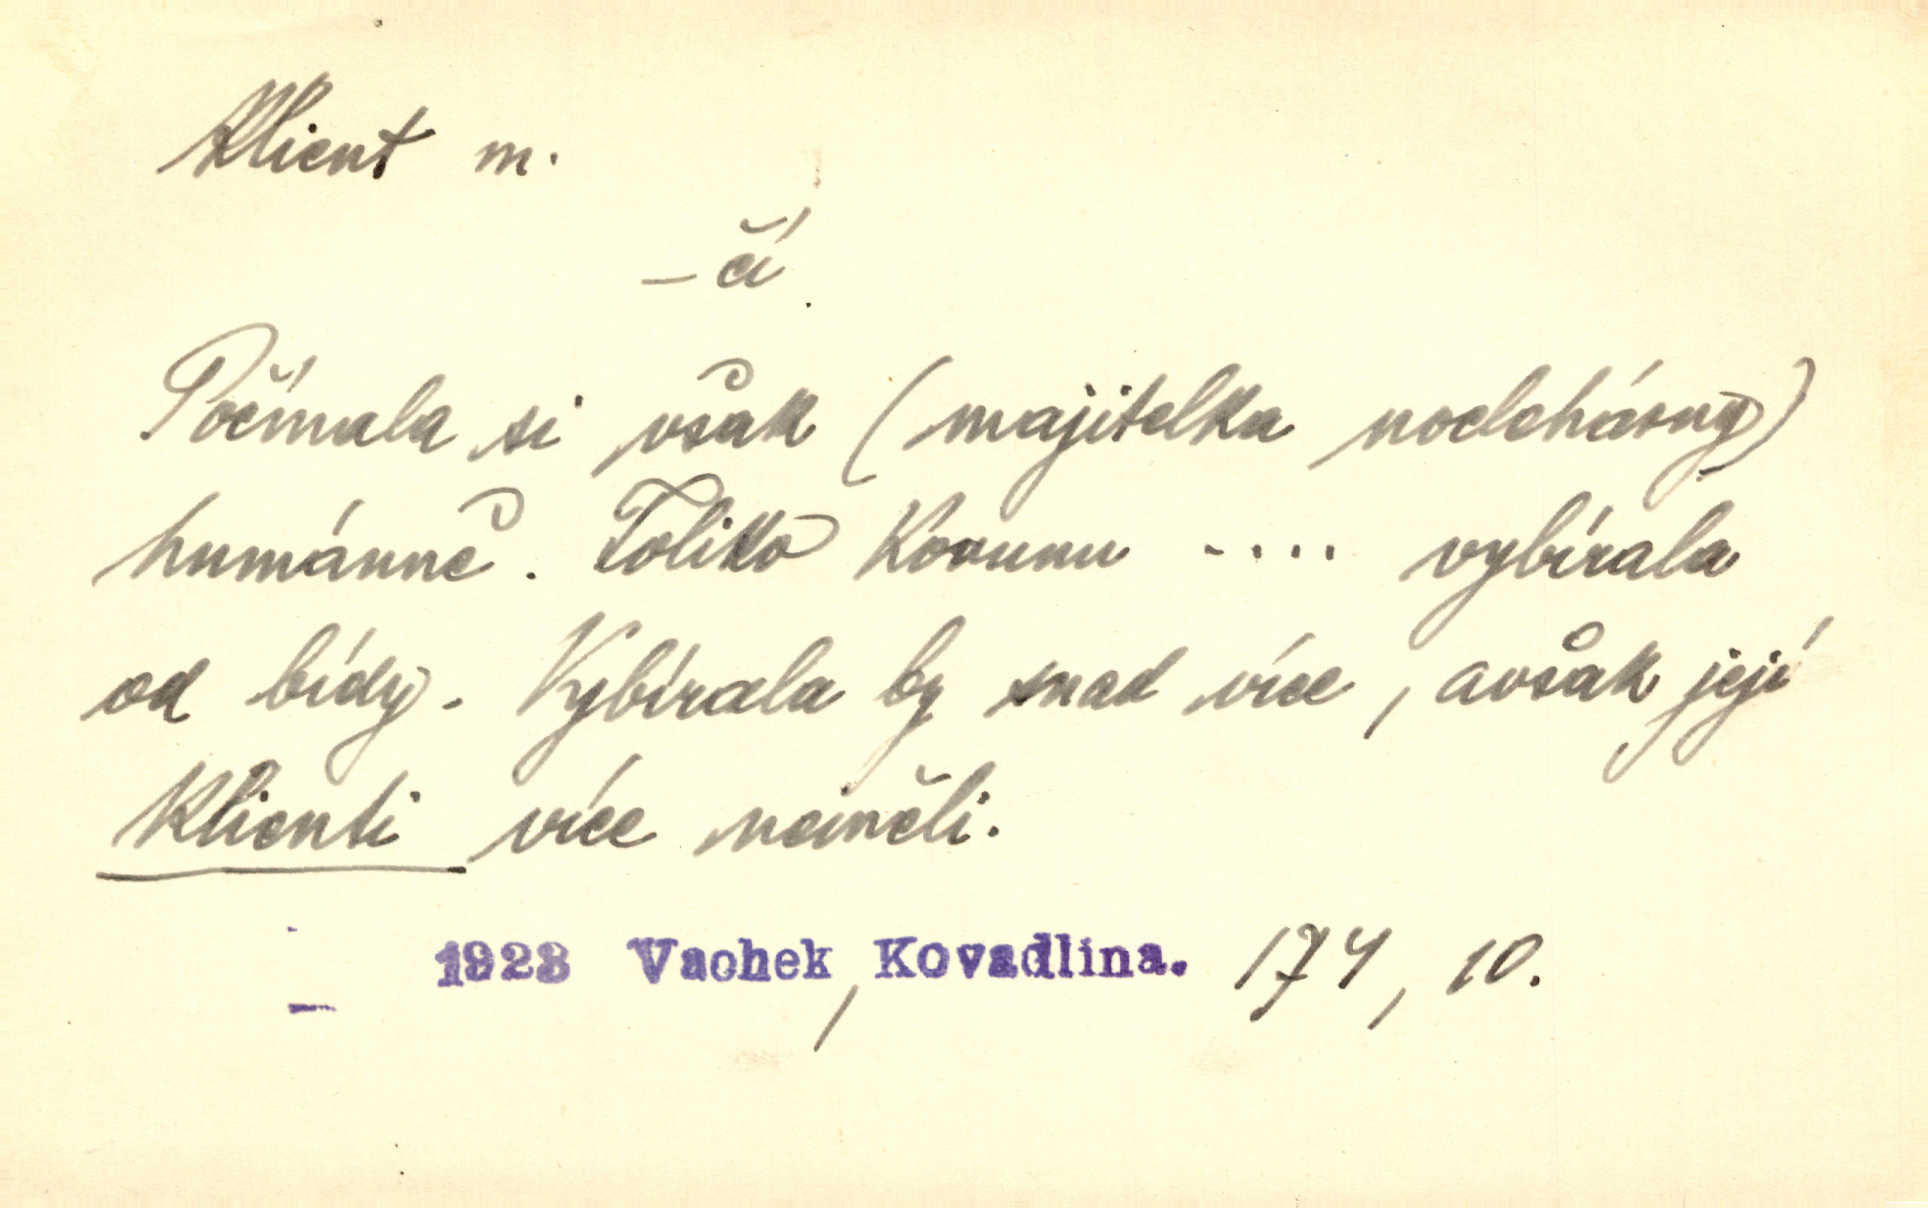 Klient m.
– čí
Počínala si však (majitelka noclehárny)
humánně. Toliko korunu .... vybírala
od bídy. Vybírala by snad více, avšak její
klienti více neměli.
1923 Vachek, Kovadlina. 174, 10.